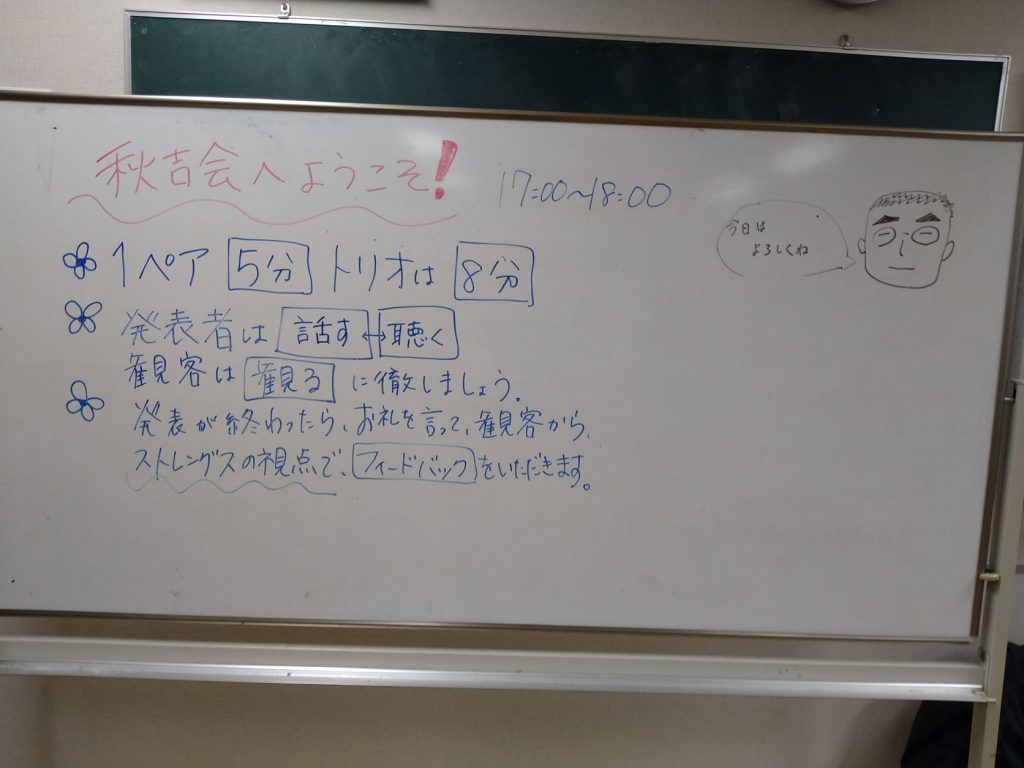 秋吉会へようこそ!
17:00〜18:00
今日は
よろしくね
1ペア 5分 トリオは 8分
発表者は 話す ↔ 聴く
観客は 観る に徹しましょう。
発表が終わったら、お礼を言って、観客から、
ストレングスの視点で、フィードバックをいただきます。